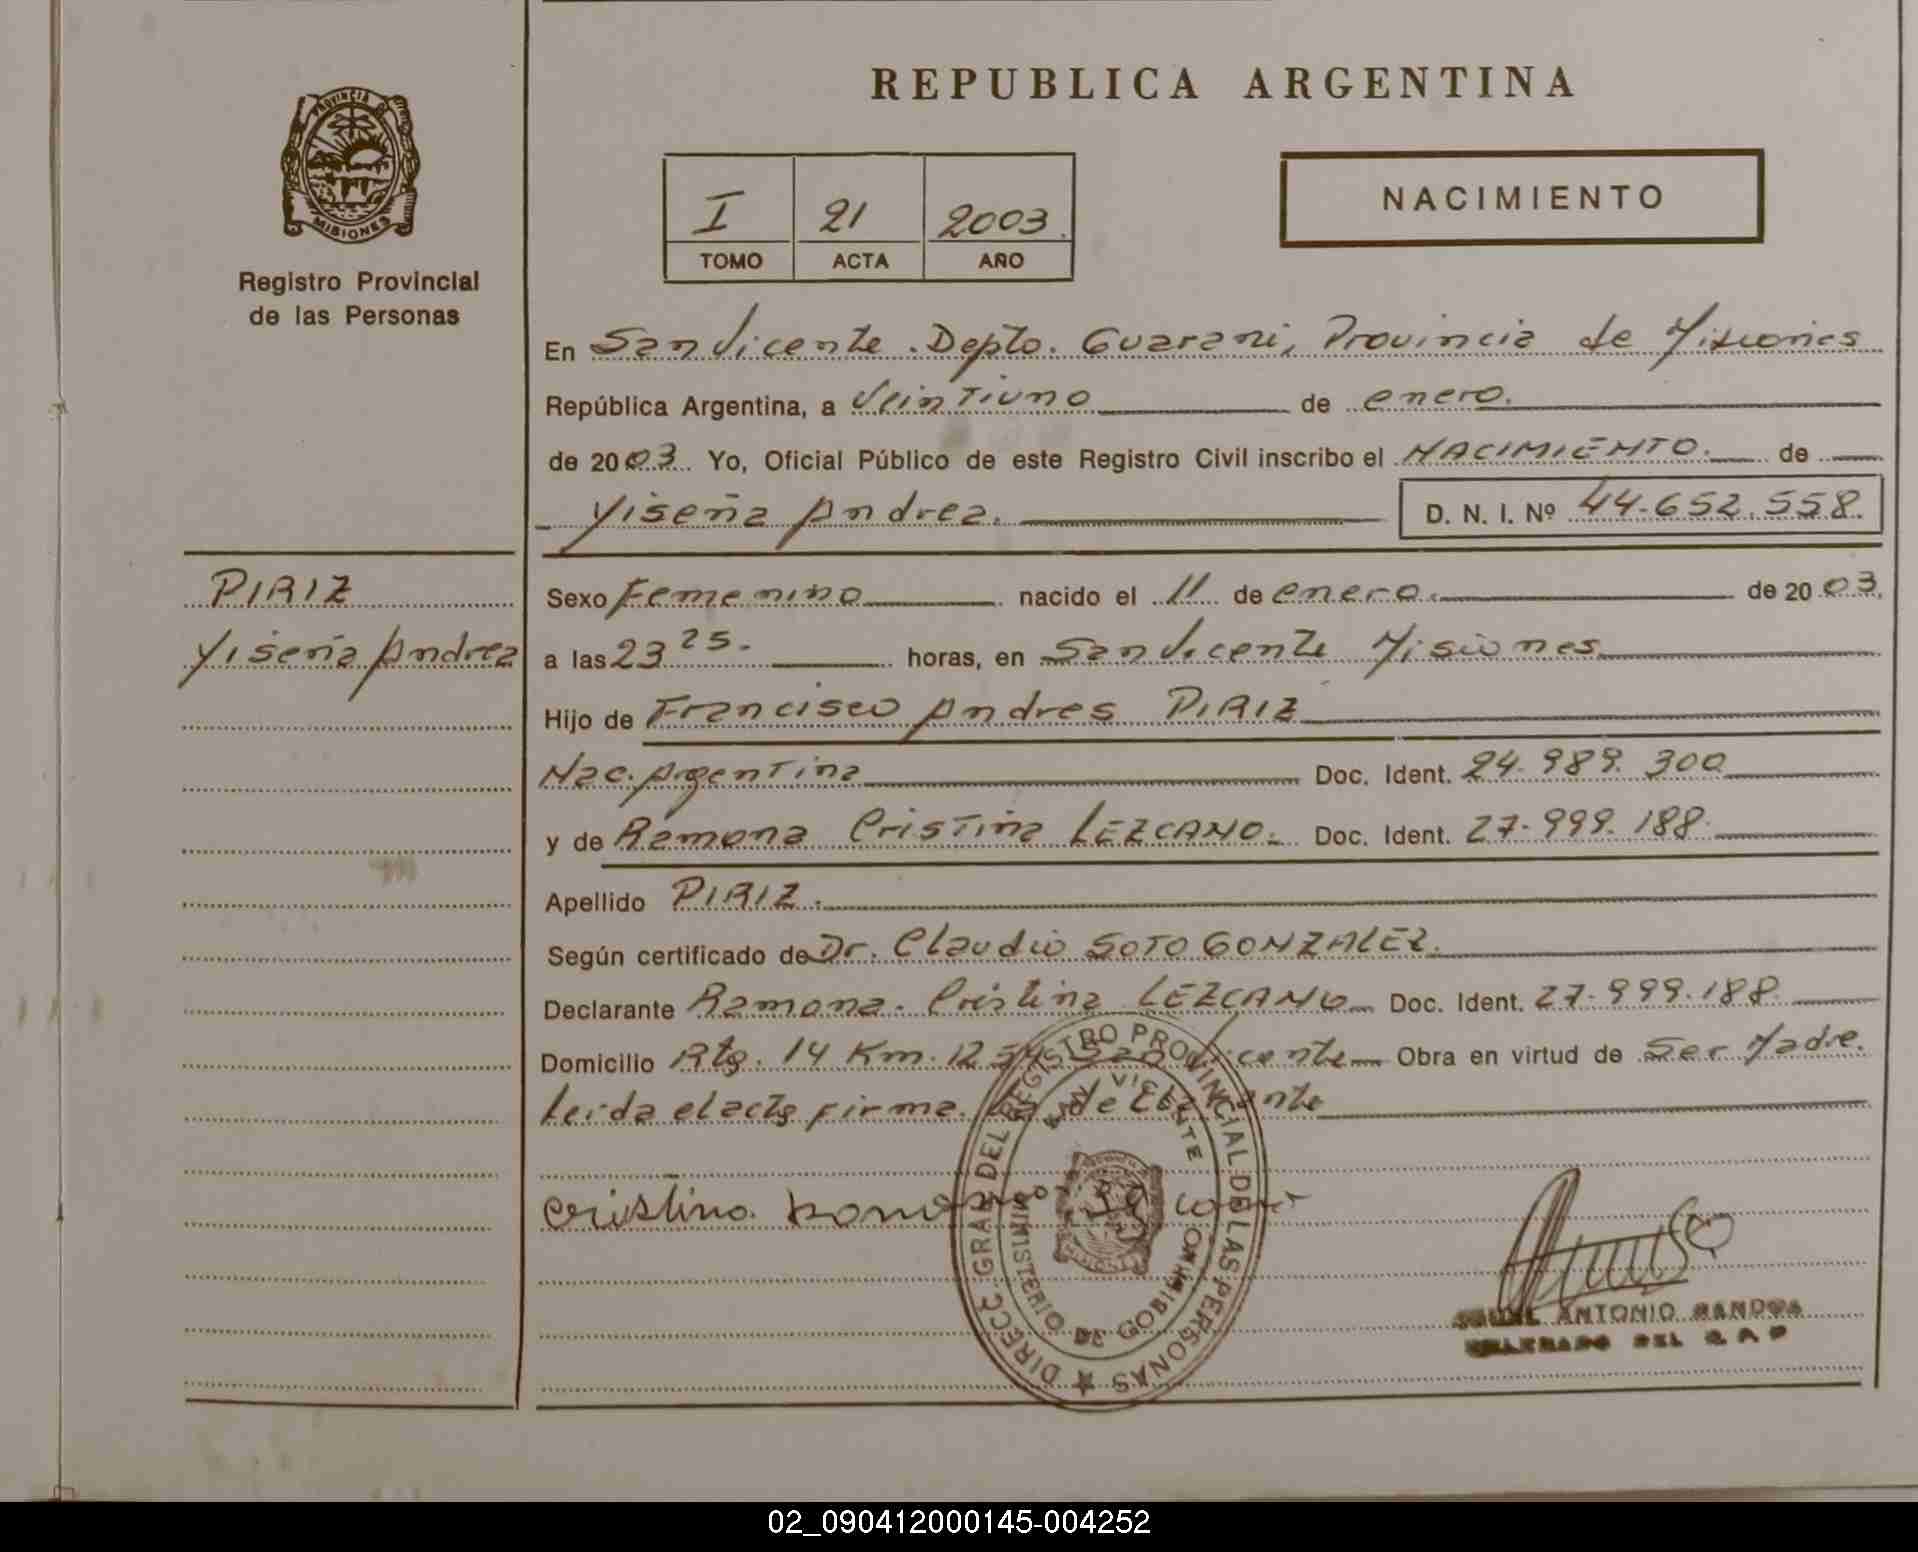 PROVINCIA DE
MISIONES
Registro Provincial
de las Personas
PIRIZ
Yiseña Andrea
REPUBLICA ARGENTINA
I 21 2003.
TOMO ACTA AÑO
NACIMIENTO
En San Vicente. Depto. Guarani, Provincia de Misiones
República Argentina, a Veintiuno de enero.
de 2003. Yo, Oficial Público de este Registro Civil inscribo el NACIMIENTO. de
Yiseña Andrea. D. N. I. Nº 44.652.558.
Sexo Femenino nacido el 11 de enero. de 2003.
a las 23 25. horas, en San Vicente Misiones
Hijo de Francisco Andres PIRIZ
Nac. Argentina Doc. Ident. 24.989.300
y de Ramona Cristina LEZCANO. Doc. Ident. 27.999.188.
Apellido PIRIZ.
Según certificado de Dr. Claudio SOTO GONZALEZ.
Declarante Ramona. Cristina LEZCANO Doc. Ident. 27.999.188
Domicilio Rta. 14 Km. 1254 San Vicente Obra en virtud de Ser Madre.
Leida el acta firma. La declarante
Cristina
DIRECC GRAL DEL REGISTRO PROVINCIAL DE LAS PERSONAS
SAN VICENTE
MINISTERIO DE GOBIERNO
ANTONIO
DEL
02_090412000145-004252